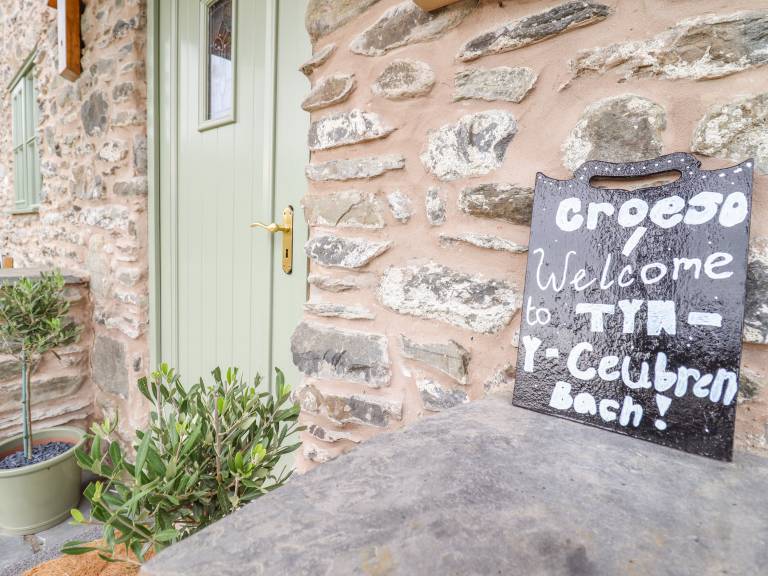 Croeso
/
Welcome
to TYN-
Y-Ceubren
Bach!